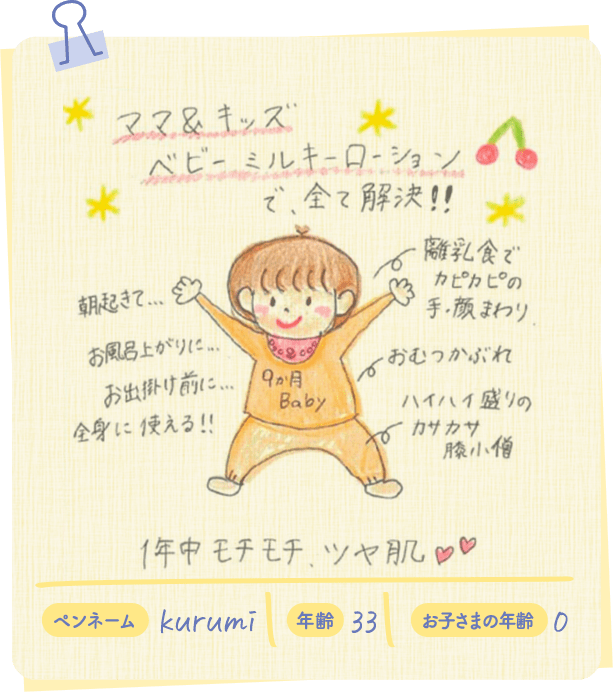 ママ&キッズ
ベビーミルキーローション
で、全て解決!!
朝起きて…
お風呂上がりに…
お出掛け前に…
全身に使える!!
9か月
Baby
離乳食で
カピカピの
手・顔まわり
おむつかぶれ
ハイハイ盛りの
カサカサ
膝小僧
1年中モチモチ、ツヤ肌
ペンネーム kurumi 年齢 33 お子さまの年齢 0